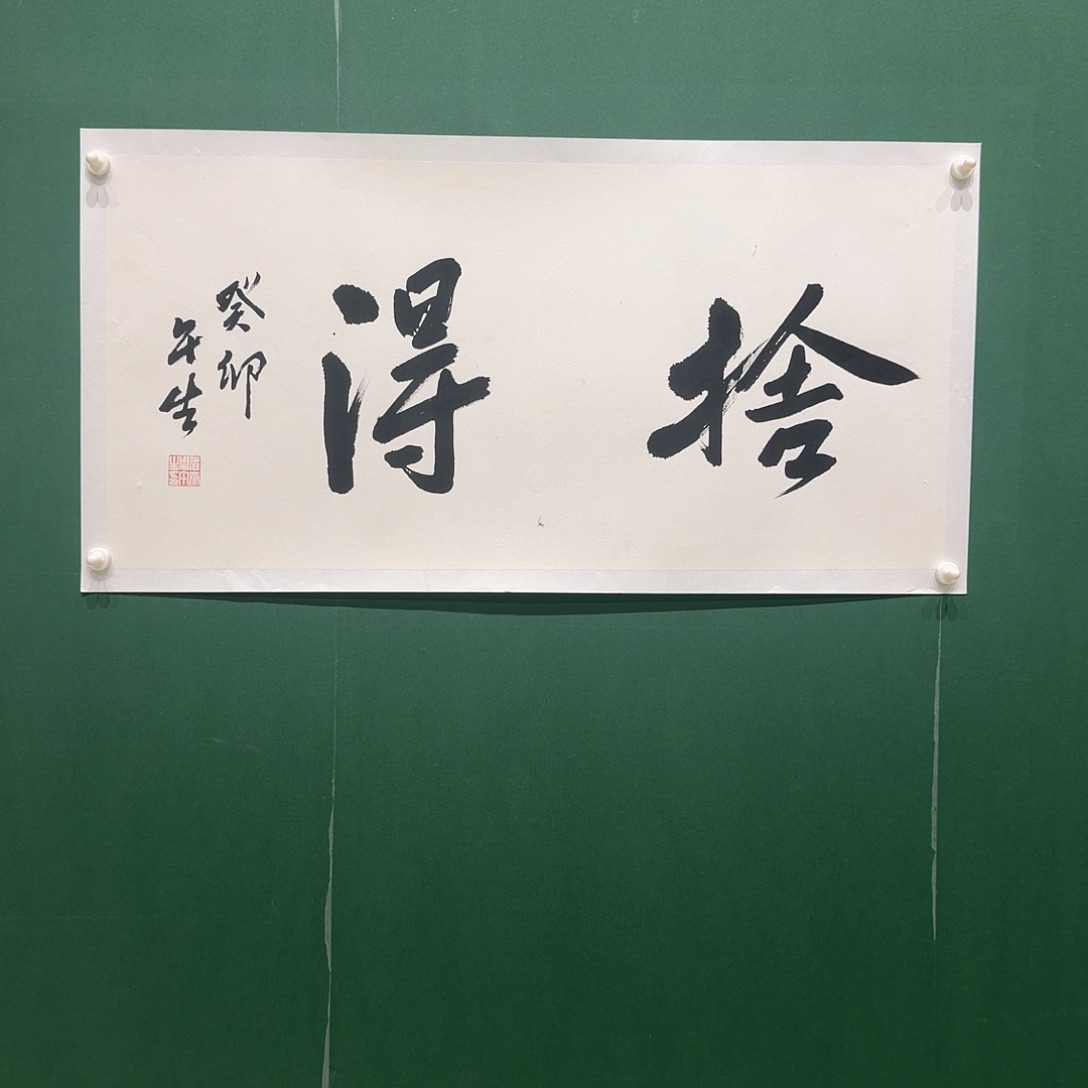 捨得
癸卯
午生